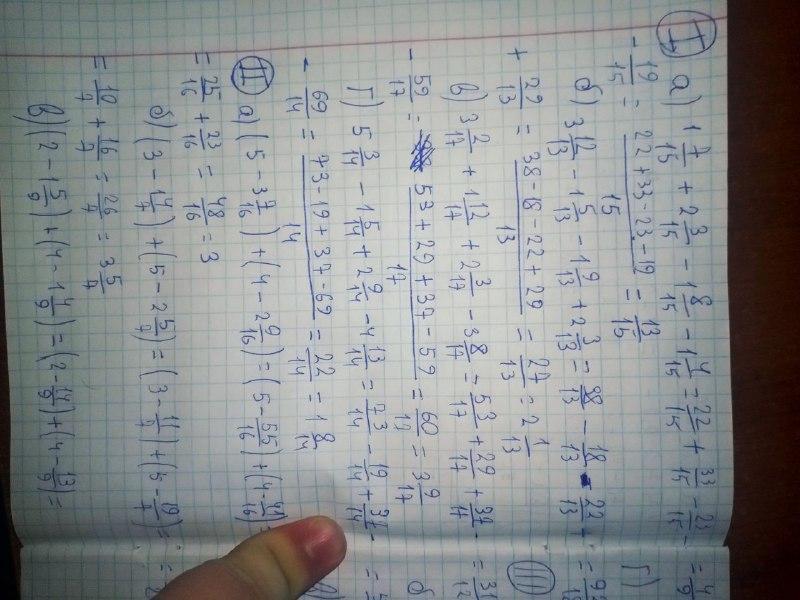 I а) 1 7/15 + 2 3/15 - 1 8/15 - 1 4/15 = 22/15 + 33/15 - 23/15 -
- 19/15 = (22+33-23-19)/15 = 13/15
б) 3 12/13 - 1 5/13 - 1 9/13 + 2 3/13 = 38/13 - 18/13 - 22/13 +
+ 29/13 = (38-18-22+29)/13 = 27/13 = 2 1/13
в) 3 2/17 + 1 12/17 + 2 3/17 - 3 8/17 = 53/17 + 29/17 + 37/17 -
- 59/17 = (53+29+37-59)/17 = 60/17 = 3 9/17
г) 5 3/14 - 1 5/14 + 2 9/14 - 4 13/14 = 73/14 - 19/14 + 37/14 -
- 69/14 = (73-19+37-69)/14 = 22/14 = 1 8/14
II а) (5 - 3 7/16) + (4 - 2 9/16) = (5 - 55/16) + (4 - 41/16) =
= 25/16 + 23/16 = 48/16 = 3
б) (3 - 1 4/7) + (5 - 2 5/7) = (3 - 11/7) + (5 - 19/7) =
= 10/7 + 16/7 = 26/7 = 3 5/7
в) (2 - 1 5/9) + (4 - 1 4/9) = (2 - 14/9) + (4 - 13/9) =
= 4/9
г)
III